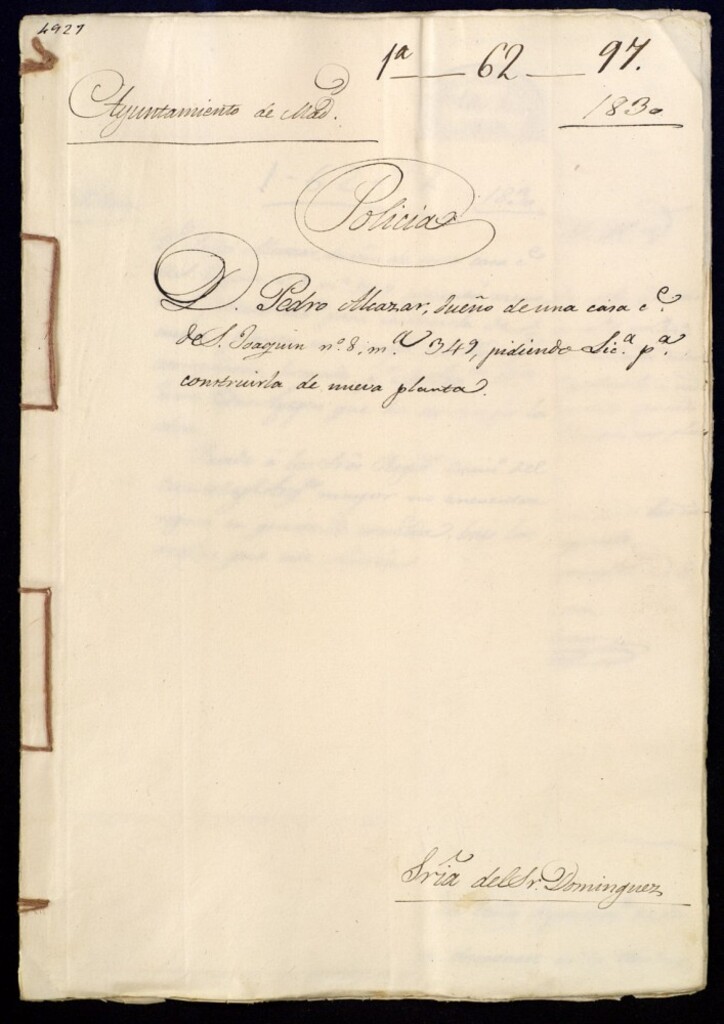 4927
1ª — 62 — 97.
Ayuntamiento de Mad.
1830
Policia
D. Pedro Alcazar, dueño de una casa c.e
de S. Joaquin nº. 8, m.ª 349, pidiendo Lic.ª p.ª
construirla de nueva planta.
Sría del Sr. Dominguez